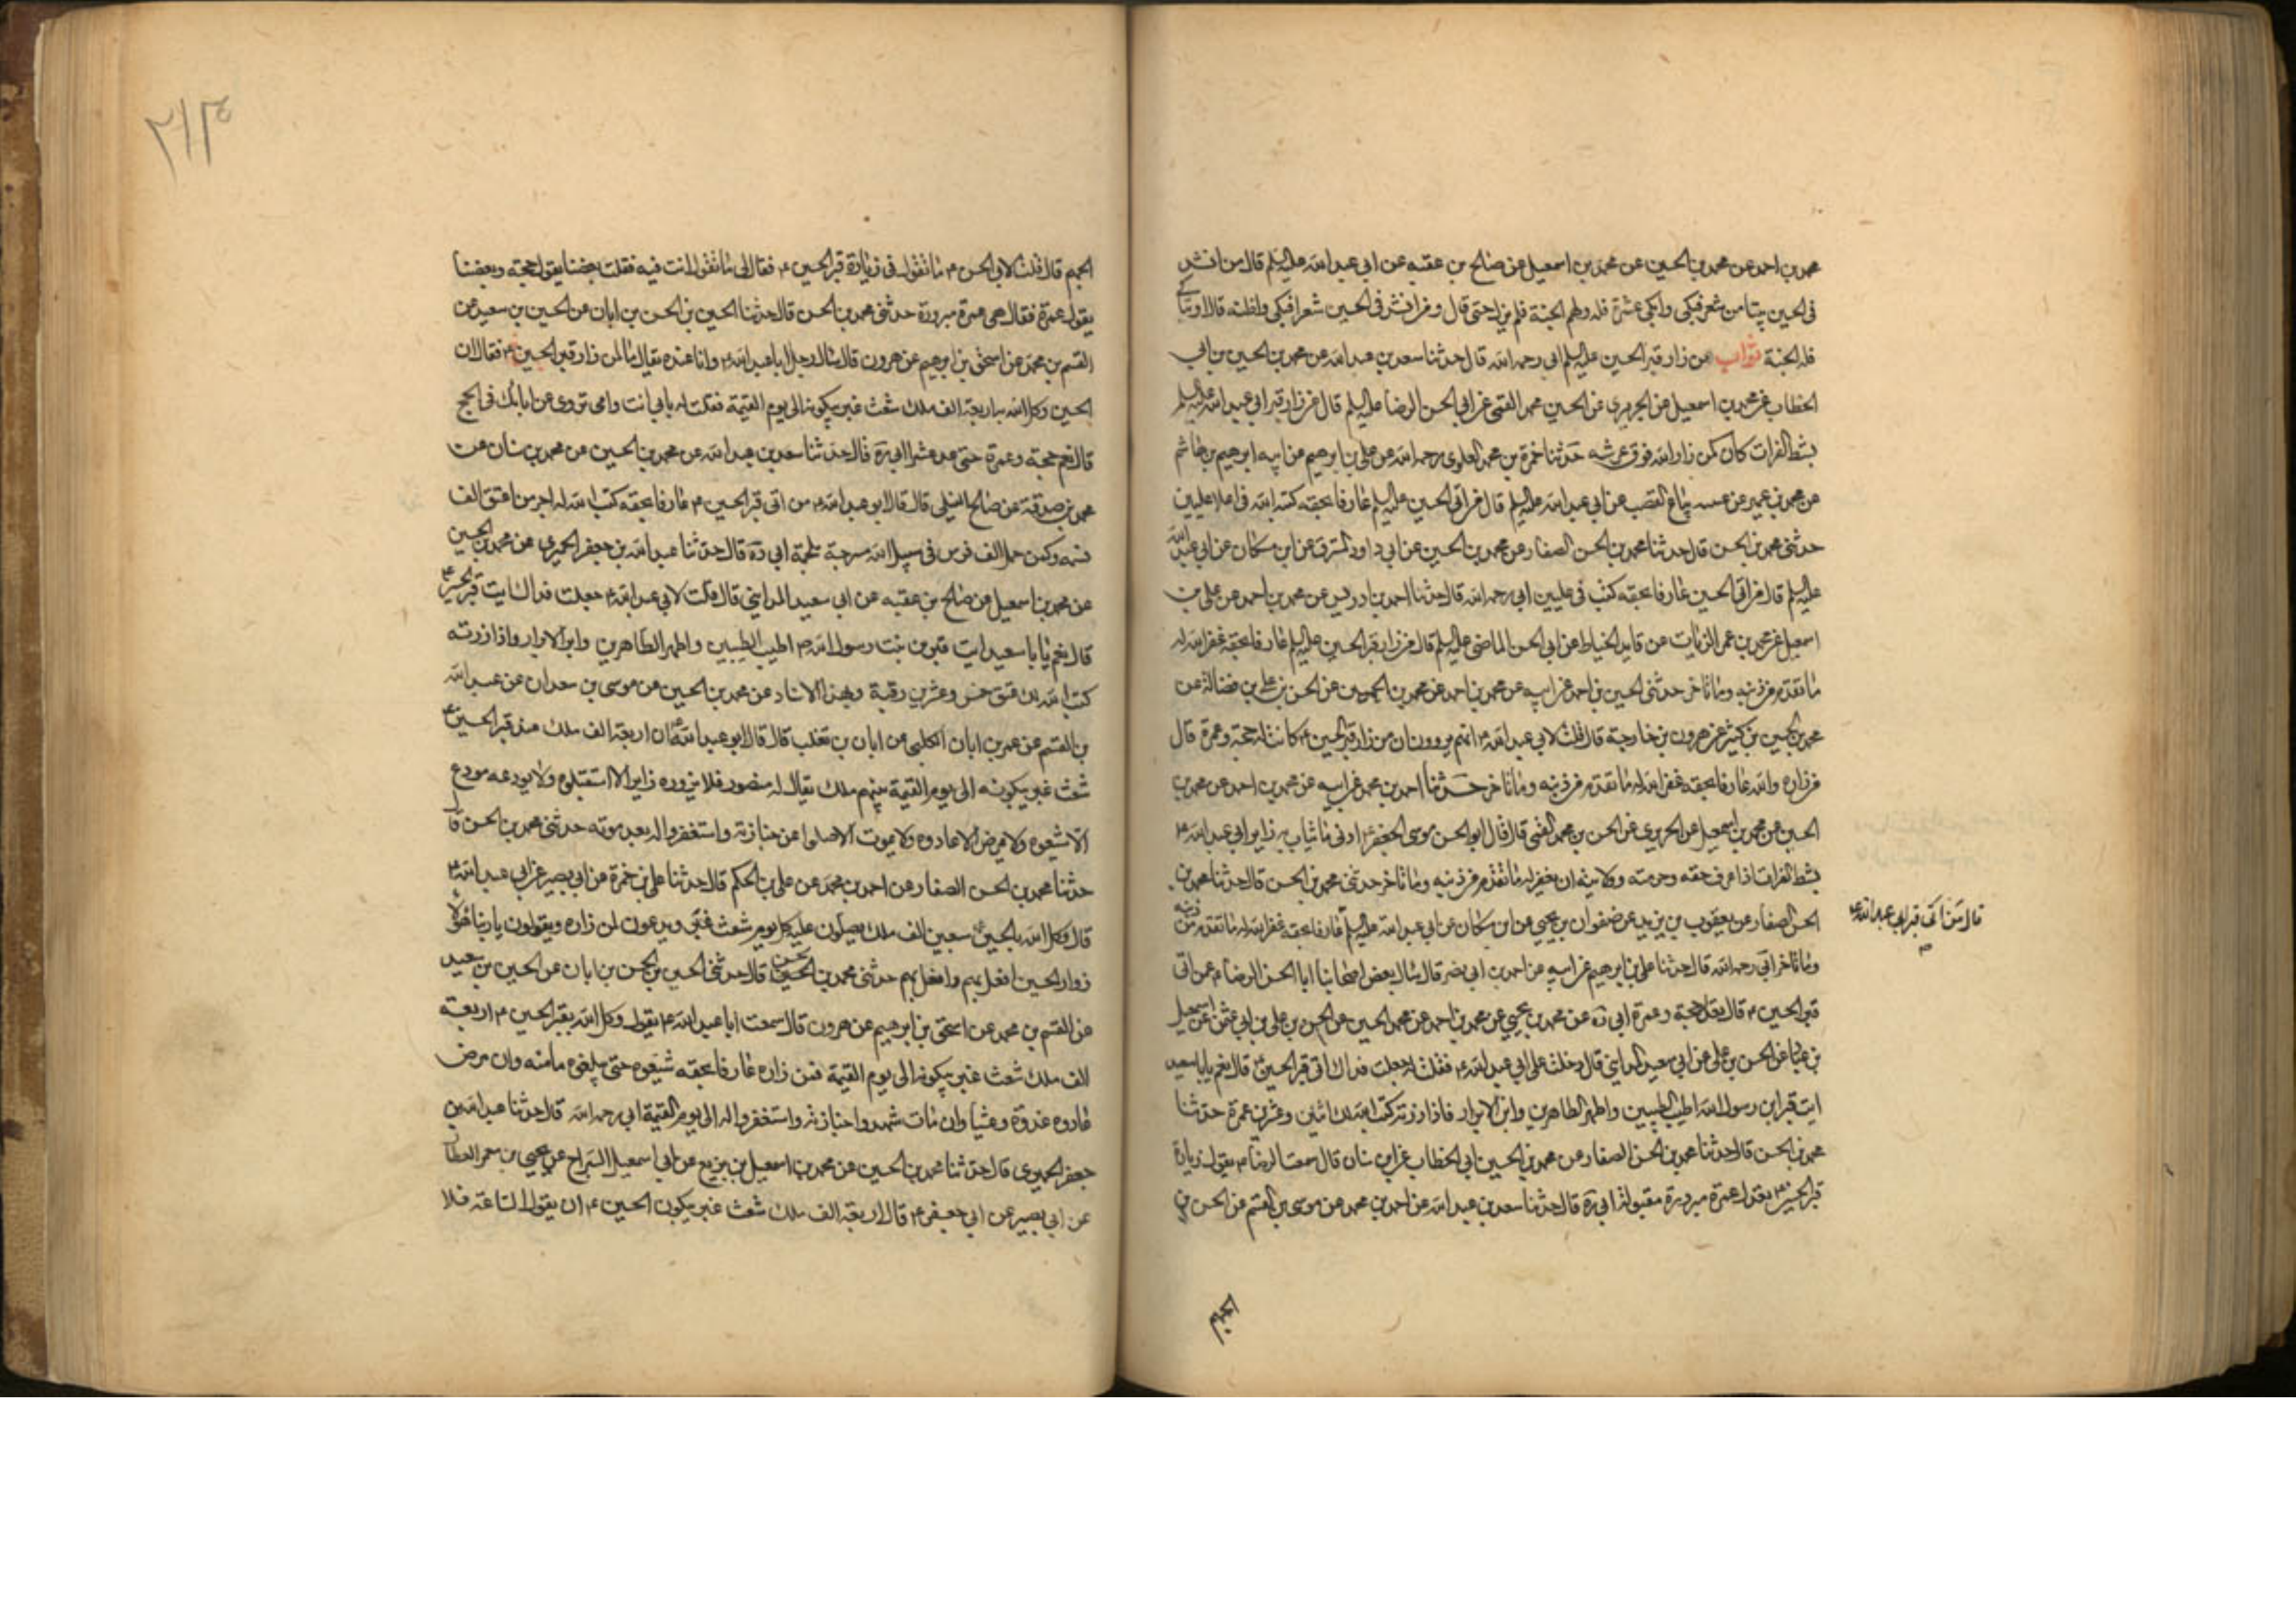 محمد بن احمد عن محمد بن الحسين عن محمد بن اسمعيل عن صالح بن عقبه عن ابى عبد الله عليه السلم قال من انشد
فى الحسين بيتا من شعر فبكى وابكى عشرة فله ولهم الجنة فلم يزل حتى قال ومن انشد فى الحسين شعرا فبكى واظنه قال او تباكى
فله الجنة ثواب من زار قبر الحسين عليه السلم ابى رحمه الله قال حدثنا سعد بن عبد الله عن محمد بن الحسين بن ابى
الخطاب عن محمد بن اسمعيل عن الخيبرى عن الحسين محمد القمى عن ابى الحسن الرضا عليه السلم قال من زار قبر ابى عبد الله عليه السلم
بشط الفرات كان كمن زار الله فوق عرشه حدثنا حمزة بن محمد العلوى رحمه الله عن على بن ابرهيم عن ابيه ابرهيم بن هاشم
عن محمد بن عمير عن عيينه بياع القصب عن ابى عبد الله عليه السلم قال من اتى الحسين عليه السلم عارفا بحقه كتبه الله فى اعلا عليين
حدثنى محمد بن الحسن قال حدثنا محمد بن الحسن الصفار عن محمد بن الحسين عن ابى داود المسترق عن ابن مسكان عن ابى عبد الله
عليه السلم قال من اتى الحسين عارفا بحقه كتب فى عليين ابى رحمه الله قال حدثنا احمد بن ادريس عن محمد بن احمد عن على بن
اسمعيل عن محمد بن عمر الزيات عن قايد الخياط عن ابى الحسن الماضى عليه السلم قال من زار قبر الحسين عليه السلم عارفا بحقه غفر الله له
ما تقدم من ذنبه وما تاخر حدثنى الحسين بن احمد عن ابيه عن محمد بن احمد عن محمد بن الحسين عن الحسن بن على بن فضالة عن
محمد بن الحسين بن كثير عن هرون بن خارجة قال قلت لابى عبد الله ع انهم يروون ان من زار قبر الحسين ع كانت له حجة وعمرة قال
من زاره والله عارفا بحقه غفر الله له ما تقدم من ذنبه وما تاخر حدثنا احمد بن محمد عن ابيه عن محمد بن احمد عن محمد بن
الحسين عن محمد بن اسمعيل عن الخيبرى عن الحسن بن محمد القمى قال قال ابو الحسن موسى الجعفر ع ادنى ما يثاب به زاير ابى عبد الله ع
بشط الفرات اذا عرف حقه وحرمته وولايته ان يغفر له ما تقدم من ذنبه وما تاخر حدثنى محمد بن الحسن قال حدثنا محمد بن
الحسن الصفار عن يعقوب بن يزيد عن صفوان بن يحيى عن ابن مسكان عن ابى عبد الله عليه السلم عارفا بحقه غفر الله له ما تقدم من ذنبه
قال من اتى قبر ابى عبد الله ع
وما تاخر ابى رحمه الله قال حدثنا على بن ابرهيم عن ابيه عن احمد بن ابى نصر قال سال بعض اصحابنا ابا الحسن الرضا ع عمن اتى
قبر الحسين ع قال تعدل حجة وعمرة ابى ره عن محمد بن يحيى عن محمد بن احمد عن محمد الحسين عن الحسن بن على بن ابى عثمن عن اسمعيل
بن عباد عن الحسن بن على عن ابى سعيد المداينى قال دخلت على ابى عبد الله ع فقلت له جعلت فداك اتى قبر الحسين ع قال نعم يا با سعيد
ايت قبر ابن رسول الله اطيب الطيبين واطهر الطاهرين وابر الابرار فاذا زرته كتب الله لك اثنين وعشرين عمرة حدثنا
محمد بن الحسن قال حدثنا محمد بن الحسن الصفار عن محمد بن الحسين بن ابى الخطاب عن ابن سنان قال سمعت الرضا ع يقول زيارة
قبر الحسين ع تعدل عمرة مبرورة مقبولة ابى ره قال حدثنا سعد بن عبد الله عن احمد بن محمد عن موسى بن القسم عن الحسن بن
الجهم
٢١٣
الجهم قال قلت لابى الحسن ع ما تقول فى زيارة قبر الحسين ع فقال لى ما تقول انت فيه فقلت بعضنا يقول حجة وبعضنا
يقول عمرة فقال هى عمرة مبرورة حدثنى محمد بن الحسن قال حدثنا الحسين بن الحسن بن ابان عن الحسين بن سعيد عن
القسم بن محمد عن اسحق بن ابرهيم عن هرون قال سال رجل ابا عبد الله ع وانا عنده فقال ما لمن زار قبر الحسين ع فقال ان
الحسين وكل الله به اربعة الف ملك شعث غبر يبكونه الى يوم القيمة فقلت له بابى انت وامى تروى عن ابائك فى الحج
قال نعم حجة وعمرة حتى عد عشرا ابى ره قال حدثنا سعد بن عبد الله عن محمد بن الحسين عن محمد بن سنان عن
محمد بن صدقة عن صالح النيلى قال قال ابو عبد الله ع من اتى قبر الحسين ع عارفا بحقه كتب الله له اجر من اعتق الف
نسمه وكمن حمل الف فرس فى سبيل الله مسرجة ملجمة ابى ره قال حدثنا عبد الله بن جعفر الحميرى عن محمد بن الحسين
عن محمد بن اسمعيل عن صالح بن عقبه عن ابى سعيد المداينى قال قلت لابى عبد الله ع جعلت فداك ايت قبر الحسين ع
قال نعم يا با سعيد ايت قبر بن بنت رسول الله ص اطيب الطيبين واطهر الطاهرين وابر الابرار واذا زرته
كتب الله لك عتق خمس وعشرين رقبة وبهذا الاسناد عن محمد بن الحسين عن موسى بن سعدان عن عبد الله
بن القسم عن عمر بن ابان الكلبى عن ابان بن تغلب قال قال ابو عبد الله ع ان اربعة الف ملك عند قبر الحسين ع
شعث غبر يبكونه الى يوم القيمة رئيسهم ملك يقال له منصور فلا يزوره زاير الا استقبلوه ولا يودعه مودع
الا شيعوه ولا مرض الا عادوه ولا يموت الا صلوا عن جنازته واستغفروا له بعد موته حدثنى محمد بن الحسن قال
حدثنا محمد بن الحسن الصفار عن احمد بن محمد عن على بن الحكم قال حدثنا على بن حمزة عن ابى بصير عن ابى عبد الله ع
قال وكل الله بالحسين ع سبعين الف ملك يصلون عليه كل يوم شعث غبر ويدعون لمن زاره ويقولون يا ربنا هؤلا
زوار الحسين افعل بهم وافعل بهم حدثنى محمد بن الحسن قال حدثنى الحسين بن الحسن بن ابان عن الحسين بن سعيد
عن القسم بن محمد عن اسحق بن ابرهيم عن هرون قال سمعت ابا عبد الله ع يقول وكل الله بقبر الحسين ع اربعة
الف ملك شعث غبر يبكونه الى يوم القيمة فمن زاره عارفا بحقه شيعوه حتى يبلغوه مامنه وان مرض
عادوه غدوة وعشيا وان مات شهدوا جنازته واستغفروا له الى يوم القيمة ابى رحمه الله قال حدثنا عبد الله بن
جعفر الحميرى قال حدثنا محمد بن الحسين عن محمد بن اسمعيل بن بزيع عن ابى اسمعيل السراج عن يحيى بن معمر العطار
عن ابى بصير عن ابى جعفر ع قال اربعة الف ملك شعث غبر يبكون الحسين ع ان يقول الساعة فلا